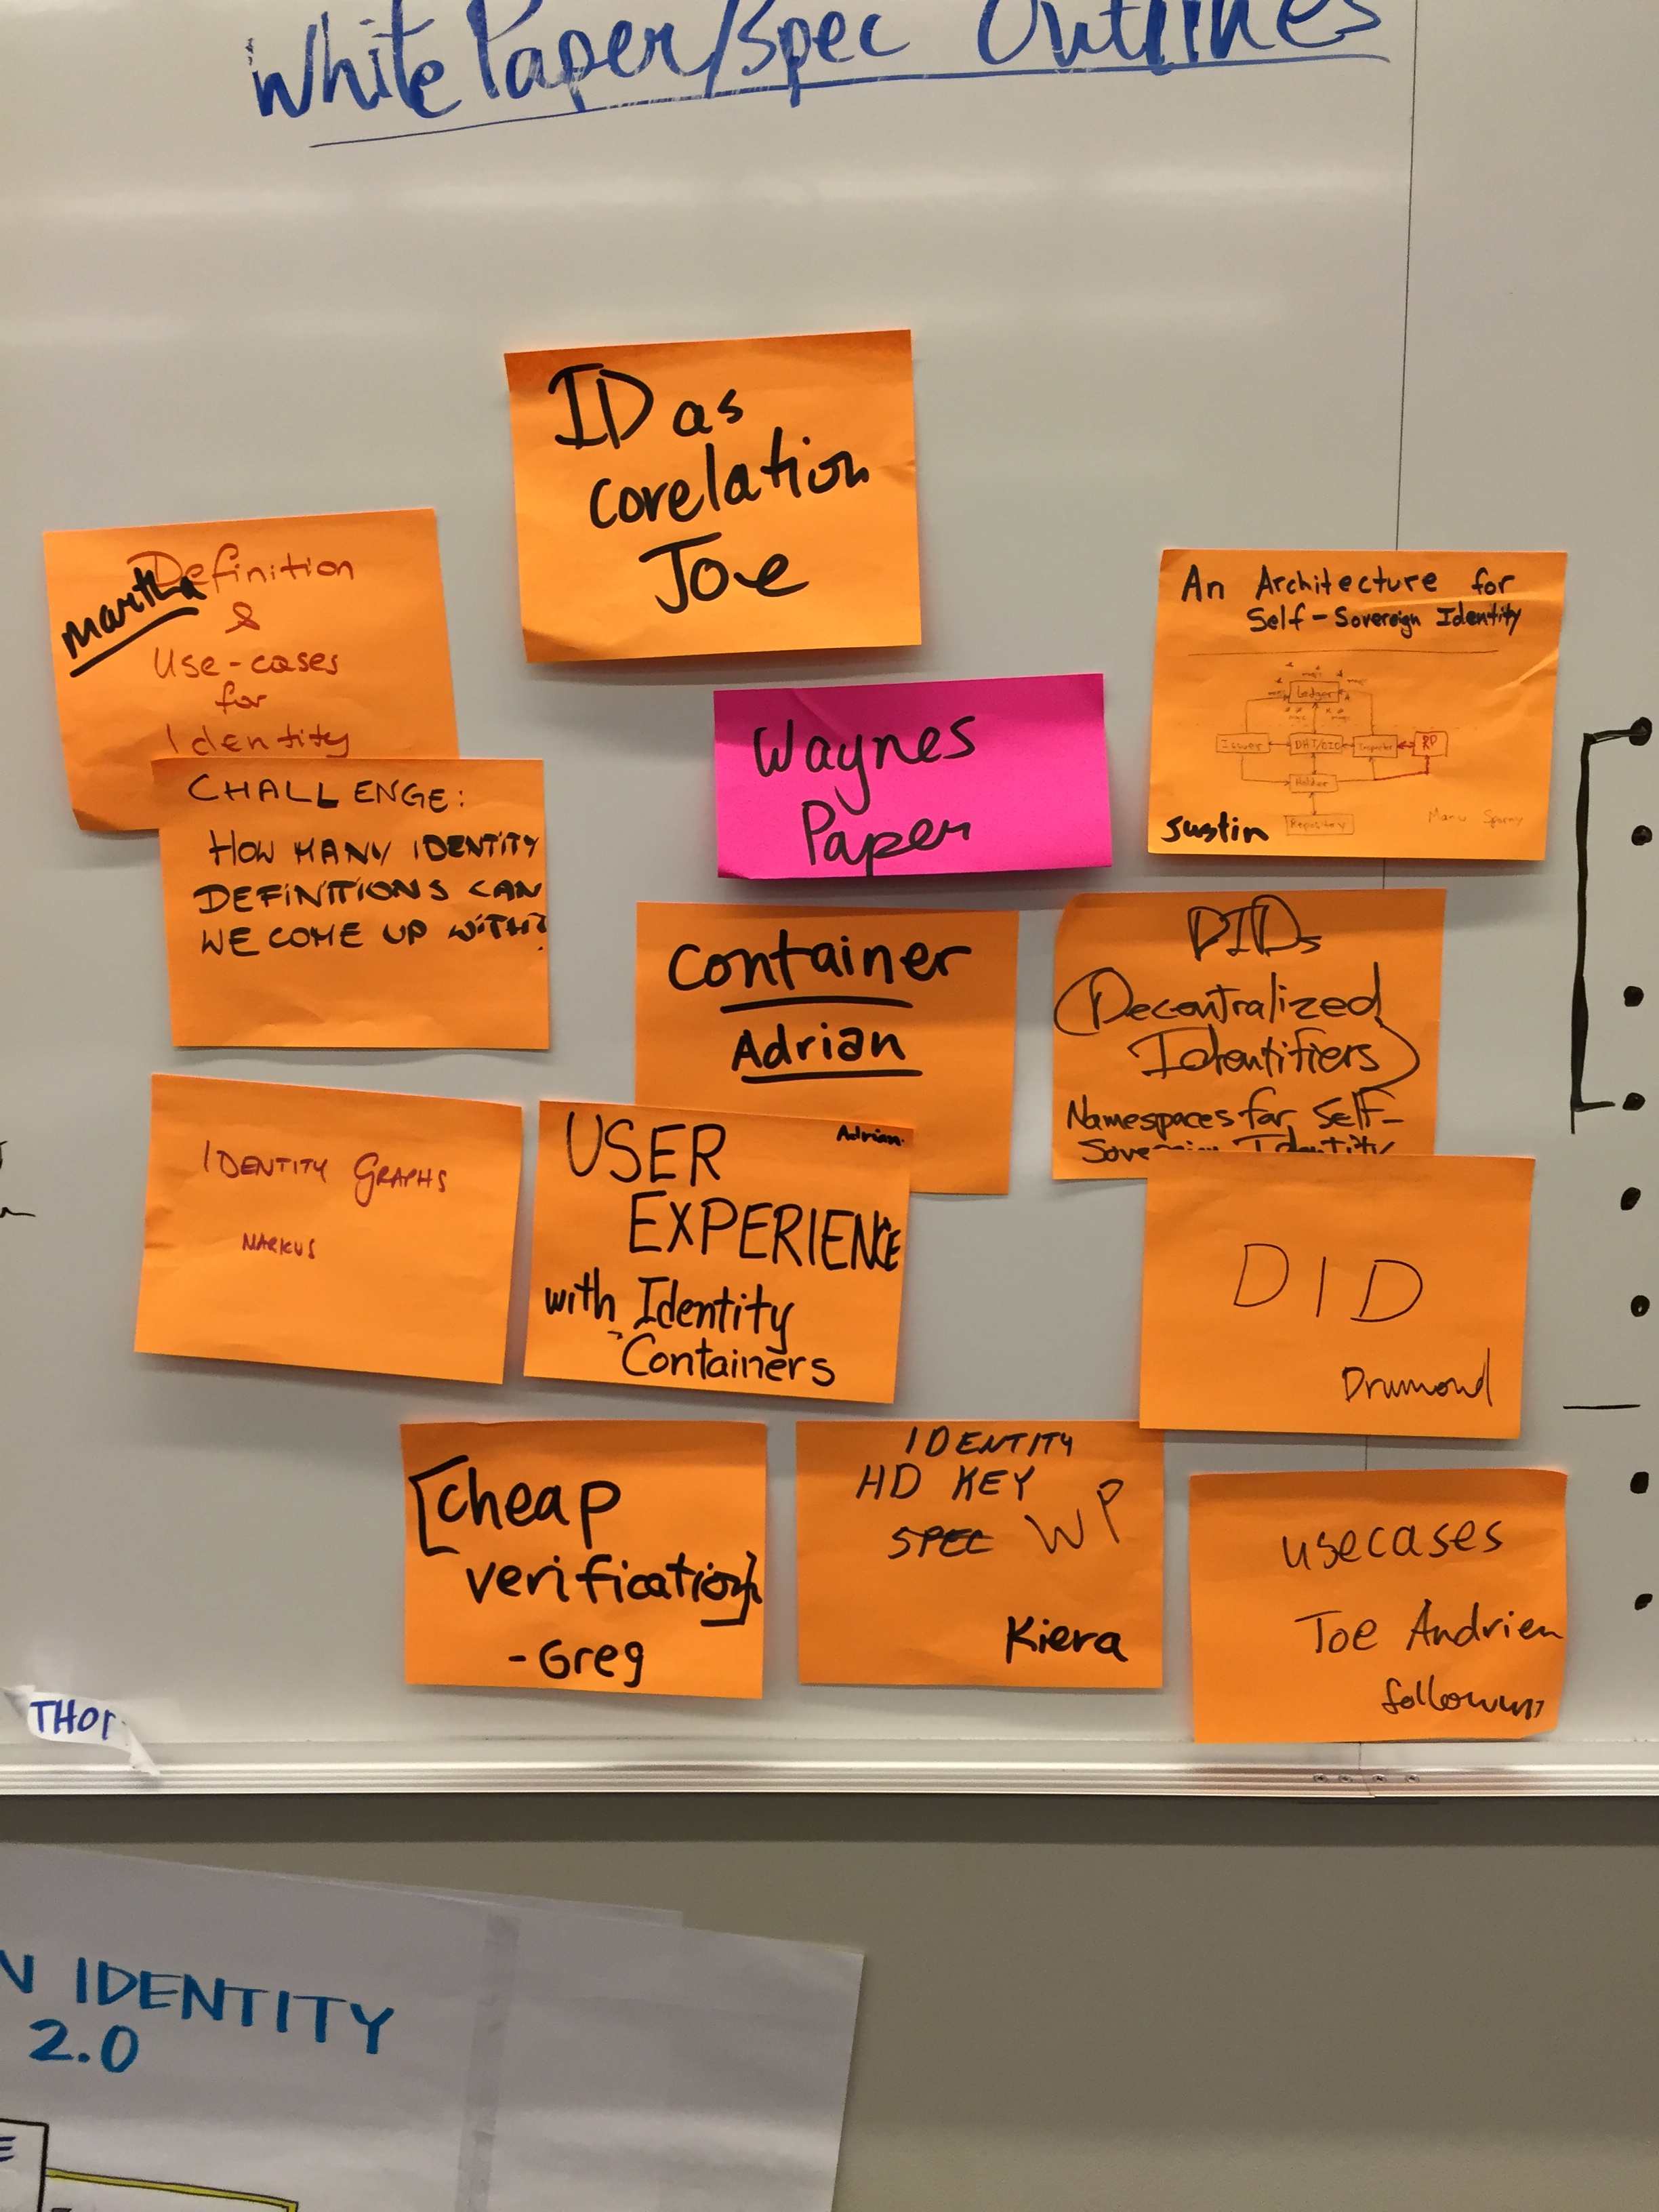 White Paper/Spec Outlines
ID as
corelation
Joe
Definition
Martha
&
Use-cases
for
Identity
CHALLENGE:
HOW MANY IDENTITY
DEFINITIONS CAN
WE COME UP WITH?
Waynes
Paper
An Architecture for
Self-Sovereign Identity
Ledger
Issuer
DHT/DID
Inspector
RP
Holder
Repository
Justin
Manu Sporny
Container
Adrian
DIDs
(Decentralized
Identifiers)
Namespaces for Self-
Sovereign Identity
IDENTITY GRAPHS
MARKUS
Adrian
USER
EXPERIENCE
with Identity
Containers
DID
Drumond
[cheap
verification]
- Greg
IDENTITY
HD KEY
SPEC WP
Kiera
usecases
Joe Andrien
THOR
N IDENTITY
2.0
E